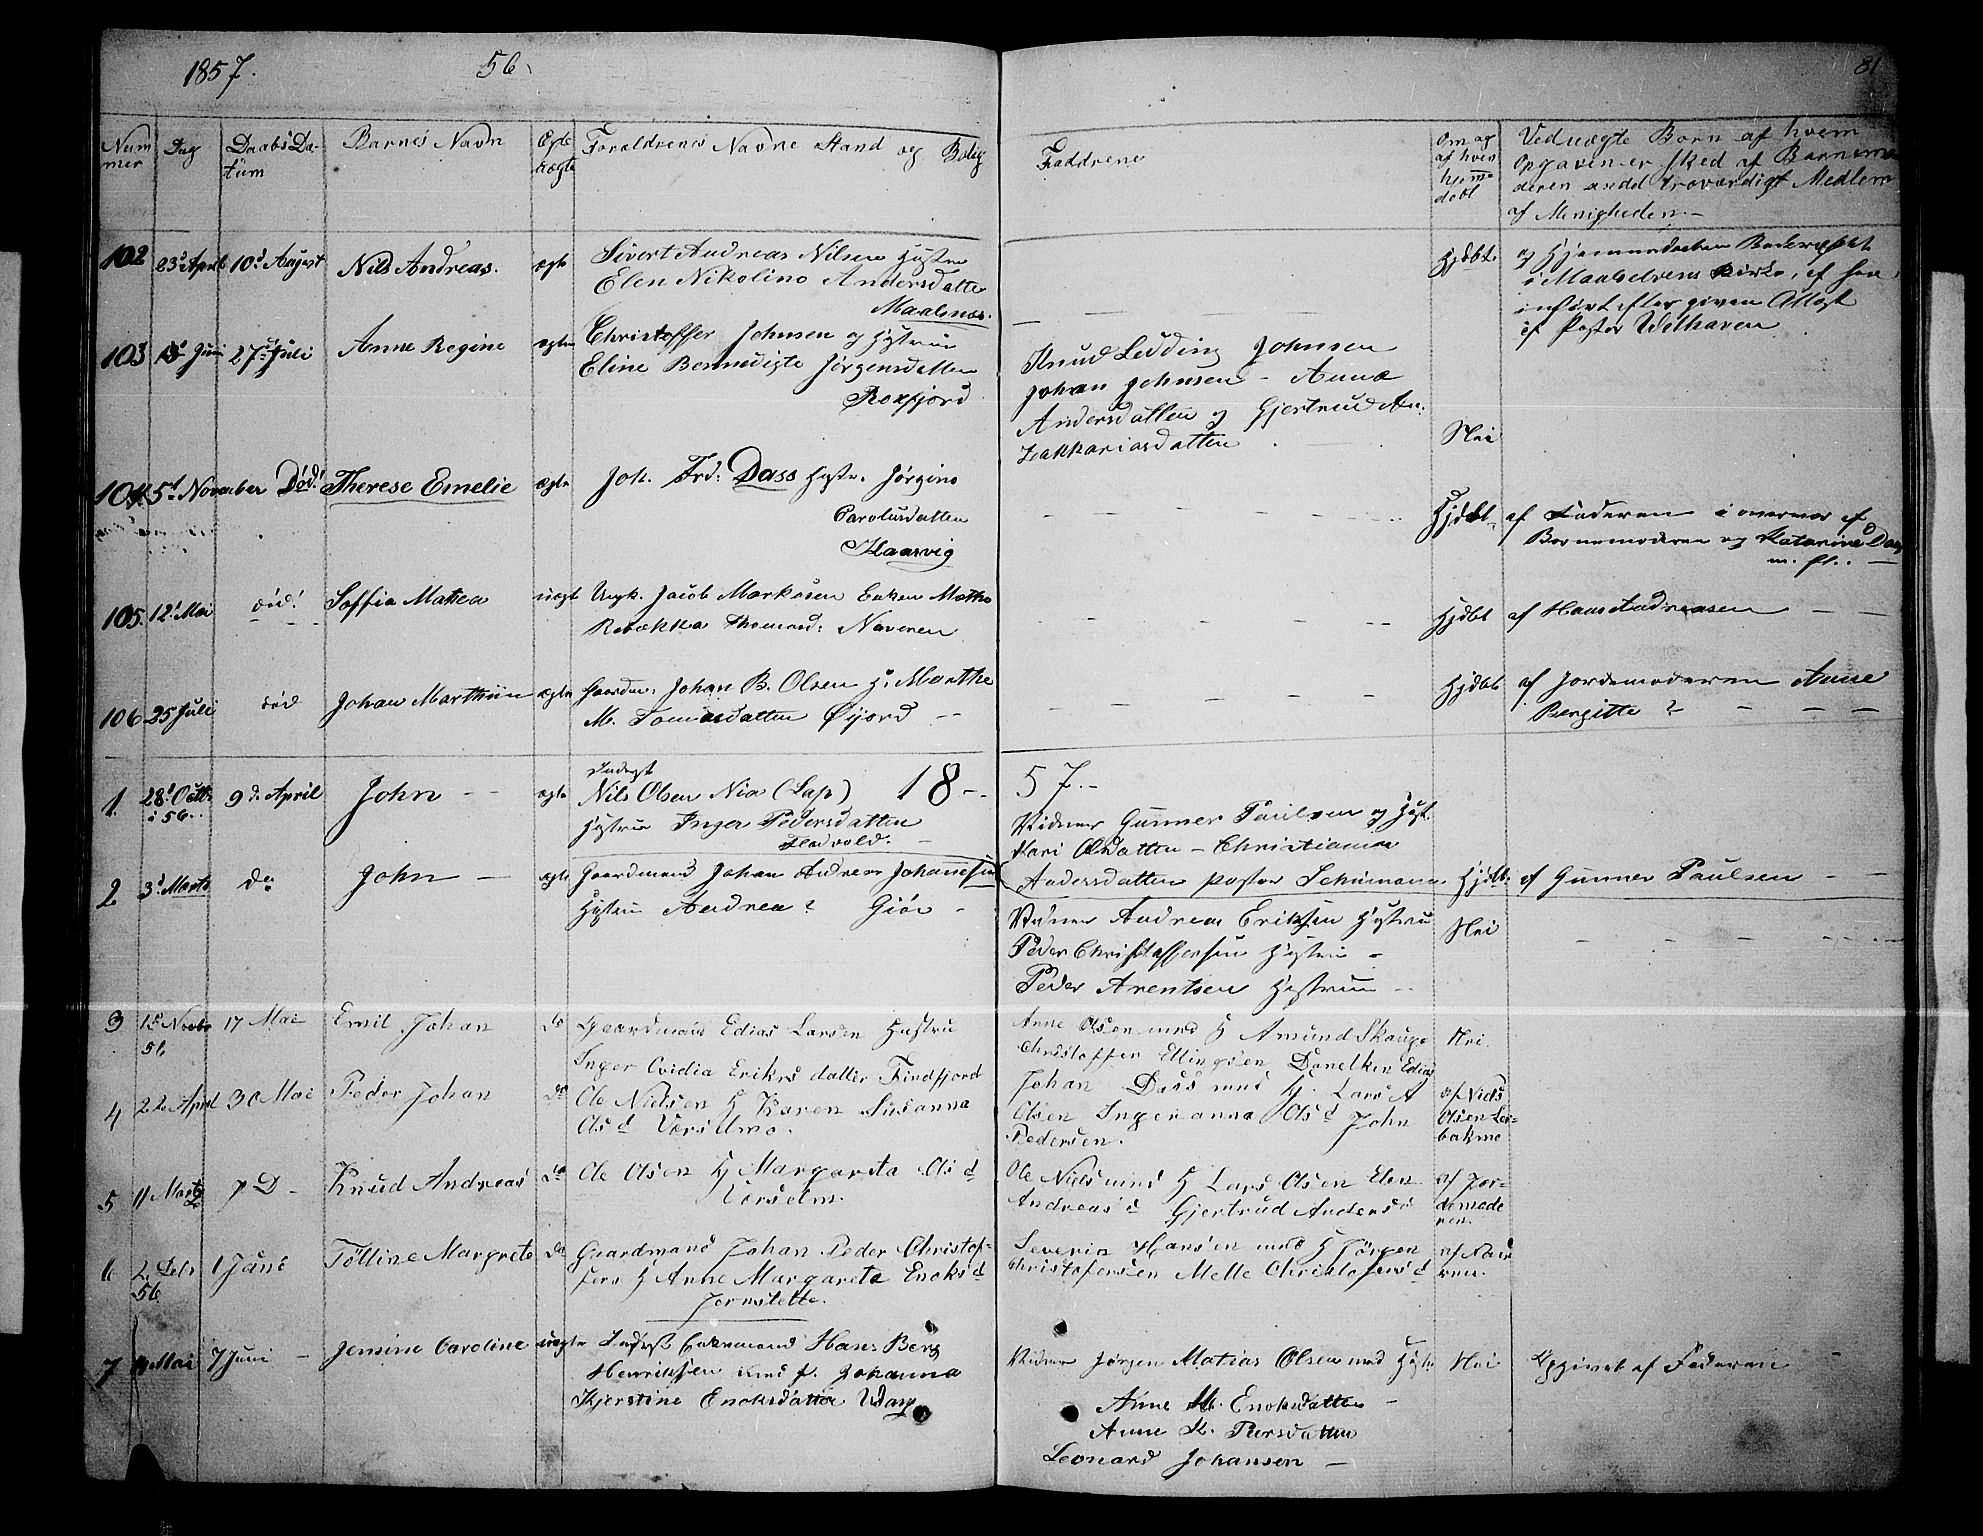 1857. 56 81
Nummer Dag DaabsDatum Barnes Navn Ægte uægte Foraldrenes Navne Stand og Bolig Faddrene Om og af hvem hjemdøbt Ved uægte Børn af hvem Opgaven er sked af Barnemoderen andet troværdigt Medlem af Menigheden.
102 23d April 10d August Nils Andreas. ægte Sivert Andreas Nilsen Hustru
Elen Nikolino Andersdatter
Maalsnes.
Hjdbt. og Hjemmedaaben
i Maalselvens Kirke,
indført efter given Attest
af Pastor Welhaven
103 Juni 27d Juli Anne Regine ægte Christoffer Johnsen og Hustrue
Eline Bennedigte Jørgensdatter
Roxfjord
Knud Ledding Johnsen
Johan Johnsen - Anne
Andersdatter og Gjertrud An.
Zakkariasdatter
Nei
104 5d November Død! Therese Emelie ægte Joh. Frd: Dass Hustr. Jørgine
Carolusdatter
Klaarvig
Hjdbt. af Faderen i overvær af
Barnemoderen og Katarina Dass
m. fl. -
105. 12d Mai død! Soffia Matea uægt Ungk. Jacob Markusen Enken Marthe
Rebækka Thomasd: Naveren
Hjdbt af Hans Andreasen
106 25 Juli død Johan Marthin ægte Gaardm. Johan B. Olsen H. Marthe
M. Tomasdatter Øijord
Hjdbt af Jordemoderen Anne
Bergitte ?
1857.
1. 28d Octbr i 56. 9d April John ægte Inderst
Nils Olsen Nia (Lap)
Hustrue Inger Pedersdatter
Fladvold.
Vidner Gunner Paulsen og Hust.
Kari Olsdatter - Christianna
Andersdatter pastor Schumann Hjdbt. af Gunner Paulsen
2 3d Marts do John ægte Gaardmand Johan Andreas Johannesen
Hustru Andrea ? Giøe
Vidner Andreas Eriksen Hustru
Peder Christoffersen Hustru
Peder Arentsen Hustrue
Nei
3 15 Novbr 56 17 Mai Emil Johan do Gaardmand Edias Larsen Hustru
Inger Ovidia Eriks datter Findfjord
Anne Olsen med H Amund Skauge
Christoffer Ellingsen Danelken Edias
Nei.
4 22 April 30 Mai Peder Johan do Ole Nielsen H Karen Susanna
Ols d Værselmo.
Johan Dass med H. Lars A
Olsen Ingeranna Ols d John
Pedersen.
af Niels
Olsen
bakmo
5 11 Marts 7 D Knud Andreas do Ole Olsen H Margareta Ols d
Værselm.
Ole Niels med H Lars Olsen Elen
Andreas d Gjertrud Anders d
af Jordemoderen.
6 2 56 1 Juni Tolline Margrete do Gaardmand Johan Peder Christoffers H Anne Margareta Enoks d
Jernslette.
Severin Hansen med H Jørgen
Christofersen Mette Christofers d
7 Mai 7 Juni Jensine Caroline uægte Hans Berg
Henriksen Johanna
Kjerstine Enoksdatter
Vidner Jørgen Matias Olsen med Hustr.
Anne M. Enoksdatter -
Anne K. Persdatter
Leonard Johansen -
Nei Opgivet af Faderen